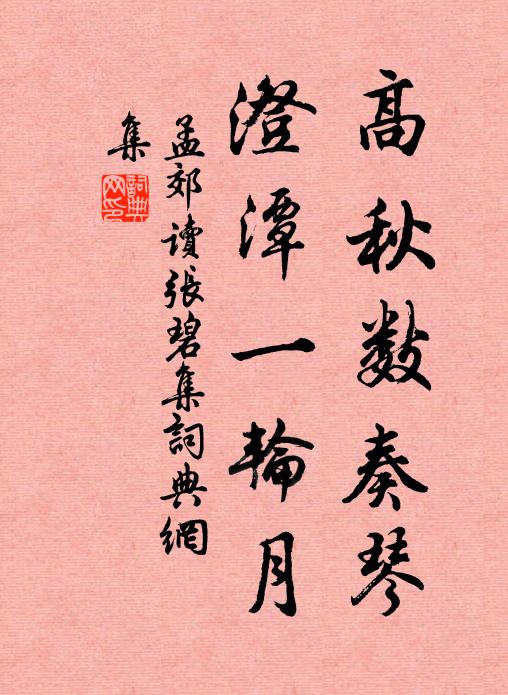 高秋數奏琴
澄潭一輪月
孟郊讀張碧集詞典網
集
詞典
网印